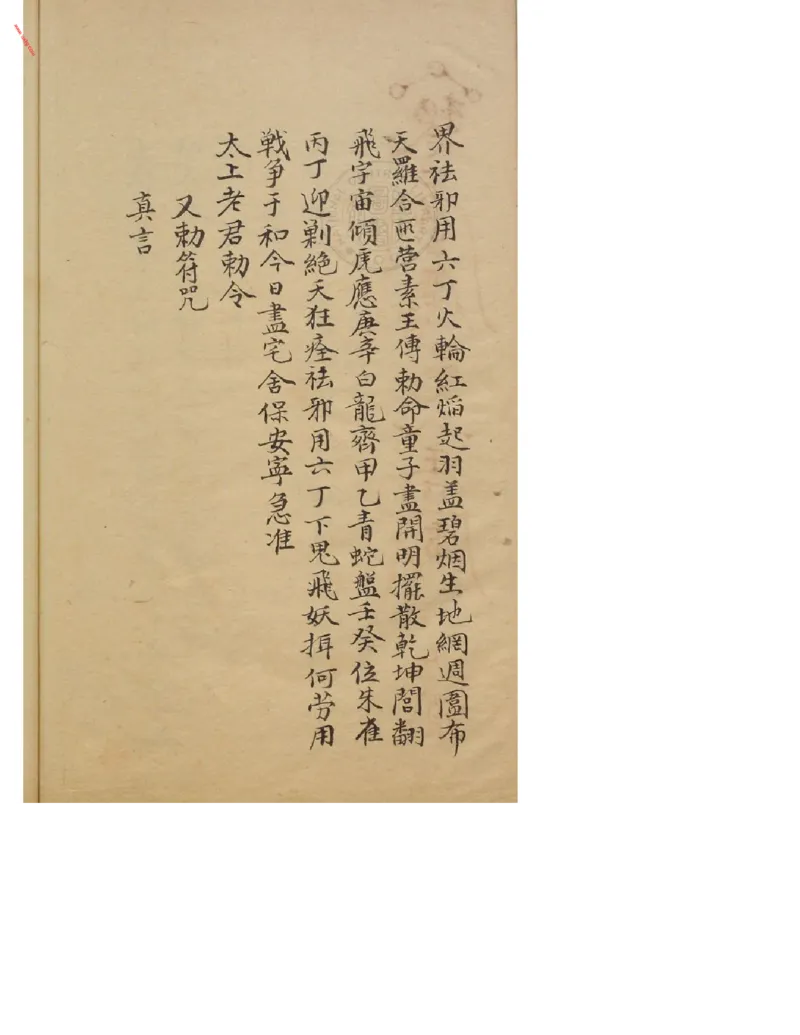 界祛邪用六丁火輪紅焰起羽盖碧烟生地網週圍布
天羅合匝营素王傳勅命童子盡開明擺散乾坤閤翻
飛宇宙傾虎應庚辛白龍齊甲乙青蛇盤壬癸位朱雀
丙丁迎剿絶天狂痊祛邪用六丁下鬼飛妖揖何劳用
戦争于和今日盡宅舍保安寧急准
太上老君勅令
又勅符咒
真言